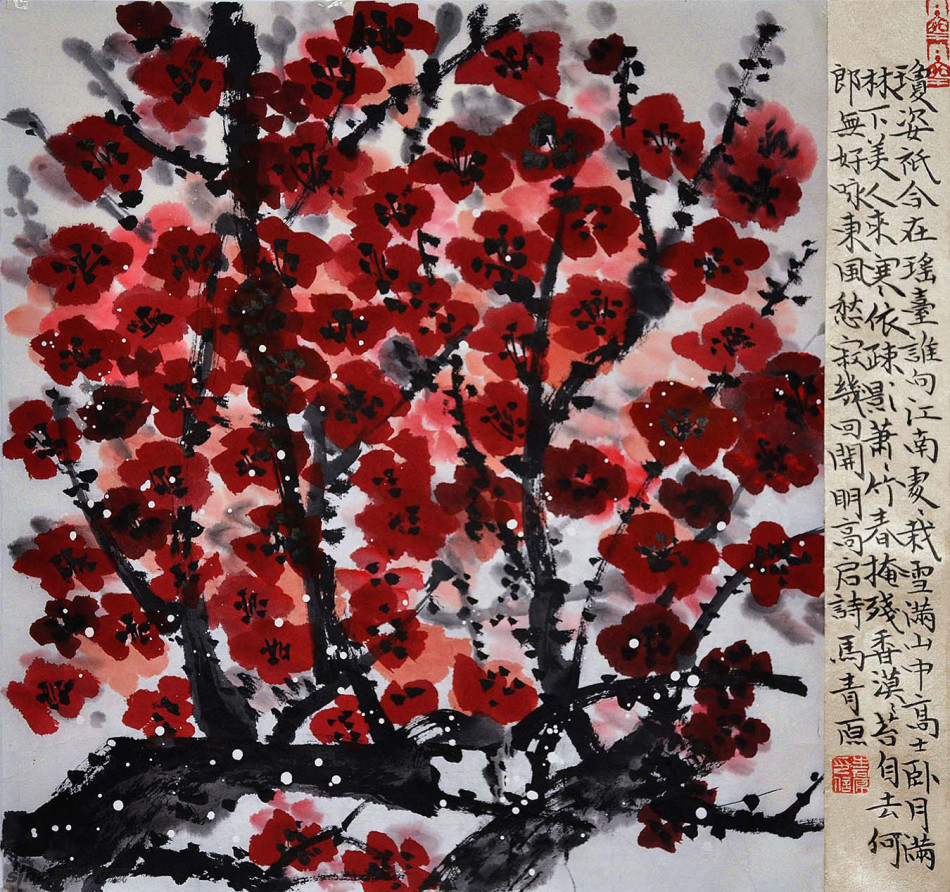 瓊姿祇今在瑤臺誰向江南處〻栽雪滿山中高士臥月滿
林下美人来寒依疎影蕭〻竹春掩殘香漠〻苔自去何
郎無好咏東風愁寂幾回開明高启詩 馬青原